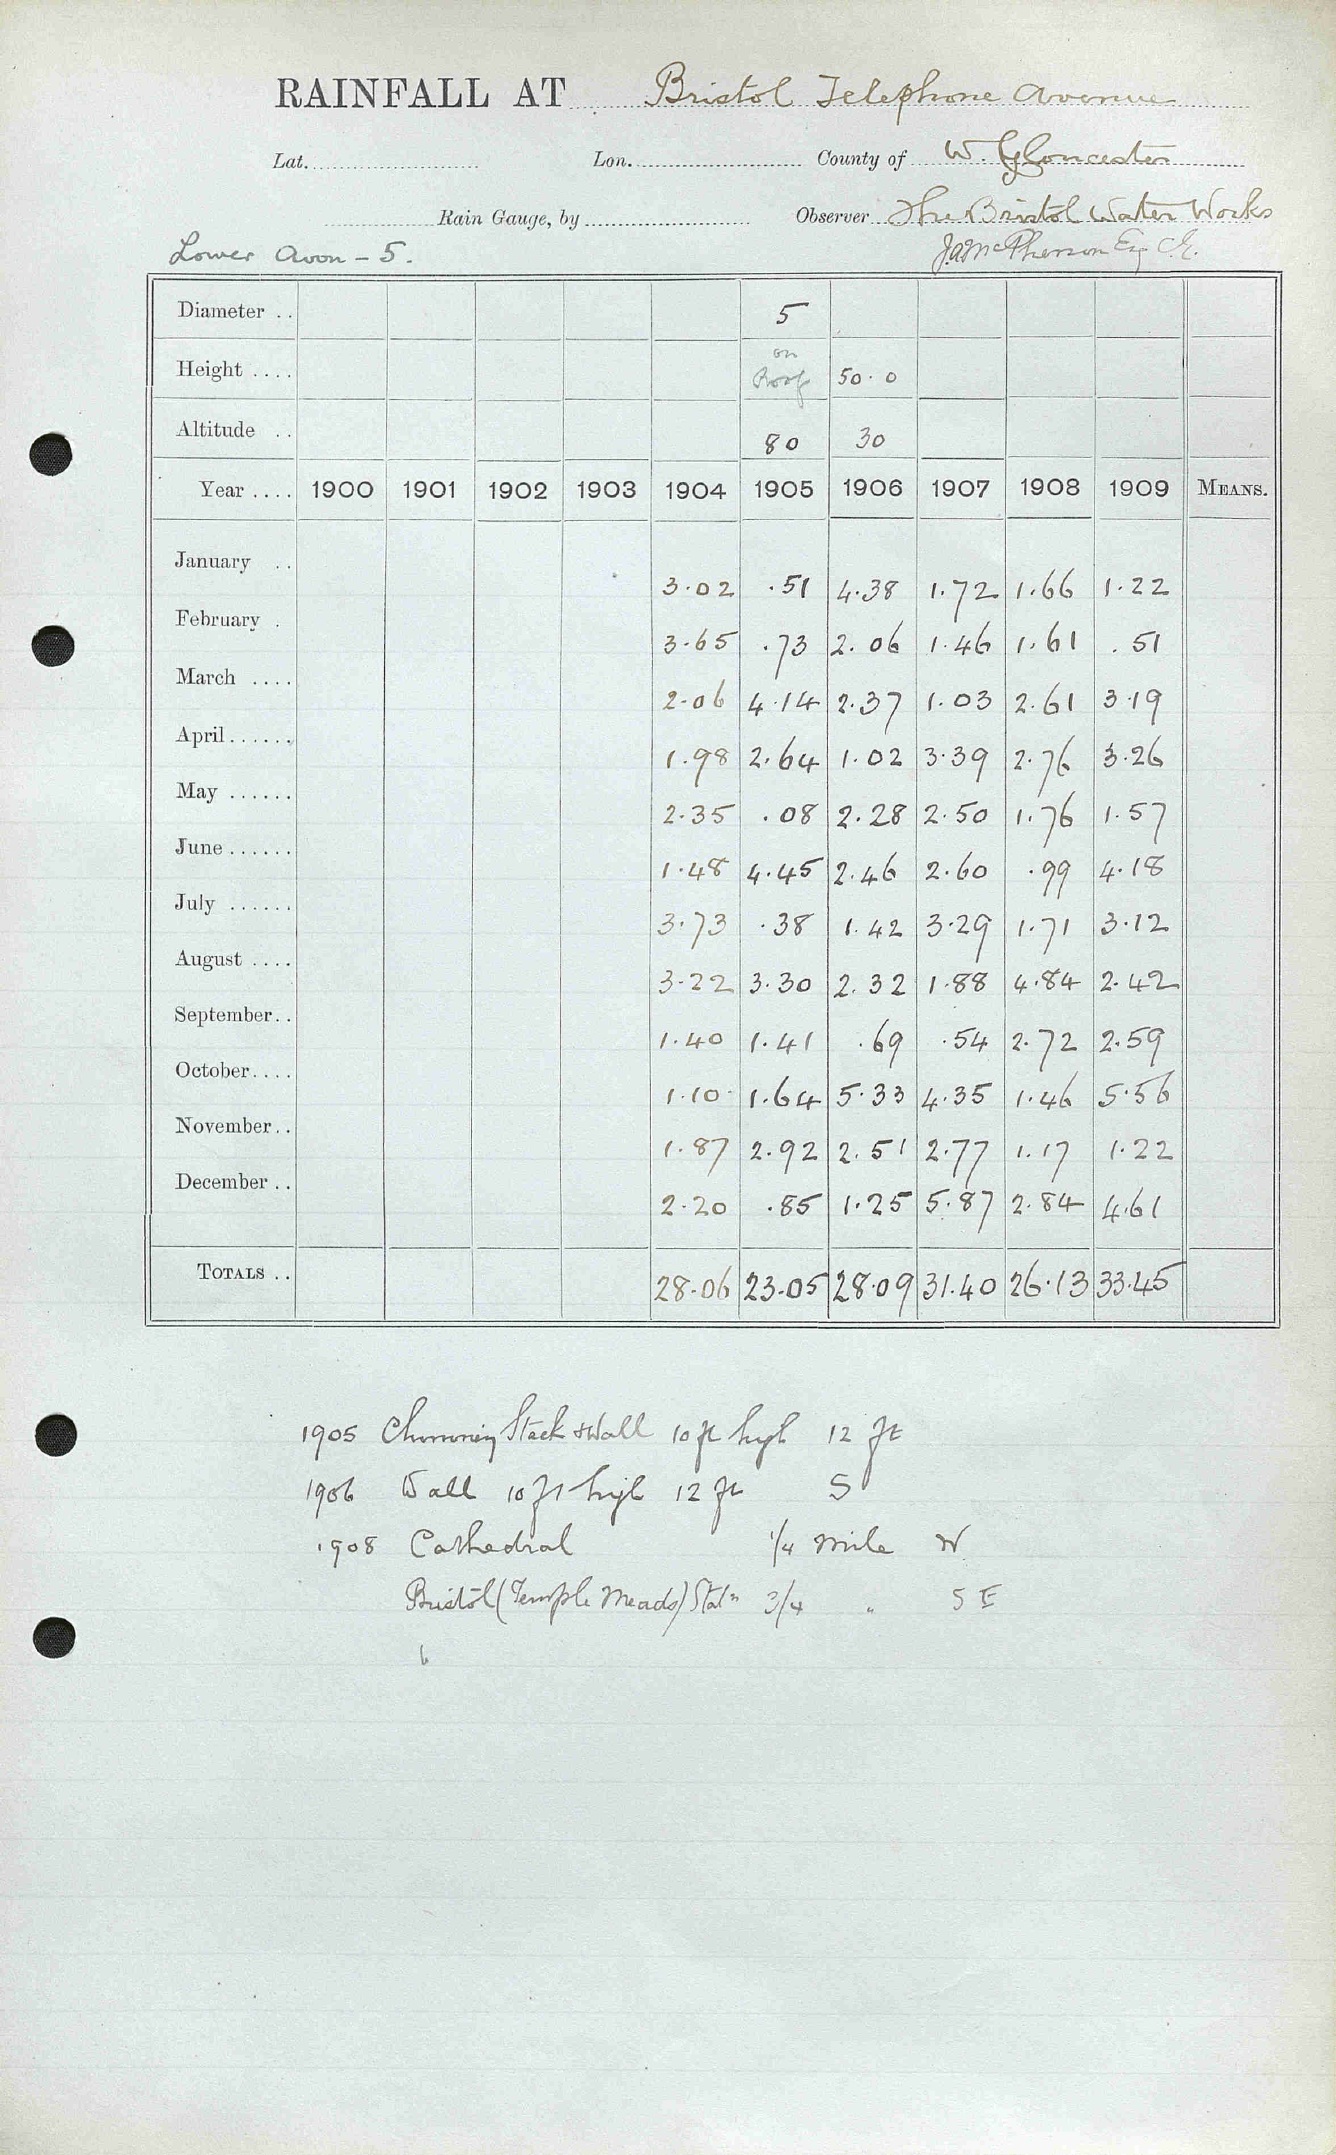 RAINFALL AT Bristol Telephone Avenue
Lat. Lon. County of W. Gloucester
Rain Gauge, by Observer The Bristol Water Works
Lower Avon - 5. J.A. McPherson Esq C.E.
Diameter .. 5
Height .... on Roof 50.0
Altitude .. 80 30
Year .... 1900 1901 1902 1903 1904 1905 1906 1907 1908 1909 MEANS.
January .. 3.02 .51 4.38 1.72 1.66 1.22
February . 3.65 .73 2.06 1.46 1.61 .51
March .... 2.06 4.14 2.37 1.03 2.61 3.19
April...... 1.98 2.64 1.02 3.39 2.76 3.26
May ...... 2.35 .08 2.28 2.50 1.76 1.57
June...... 1.48 4.45 2.46 2.60 .99 4.18
July ...... 3.73 .38 1.42 3.29 1.71 3.12
August .... 3.22 3.30 2.32 1.88 4.84 2.42
September.. 1.40 1.41 .69 .54 2.72 2.59
October.... 1.10 1.64 5.33 4.35 1.46 5.56
November.. 1.87 2.92 2.51 2.77 1.17 1.22
December.. 2.20 .85 1.25 5.87 2.84 4.61
TOTALS .. 28.06 23.05 28.09 31.40 26.13 33.45
1905 Chimney Stack & Wall 10 ft high 12 ft
1906 Wall 10 ft high 12 ft S
1908 Cathedral 1/4 mile W
Bristol (Temple Meads) Statn 3/4 " S E